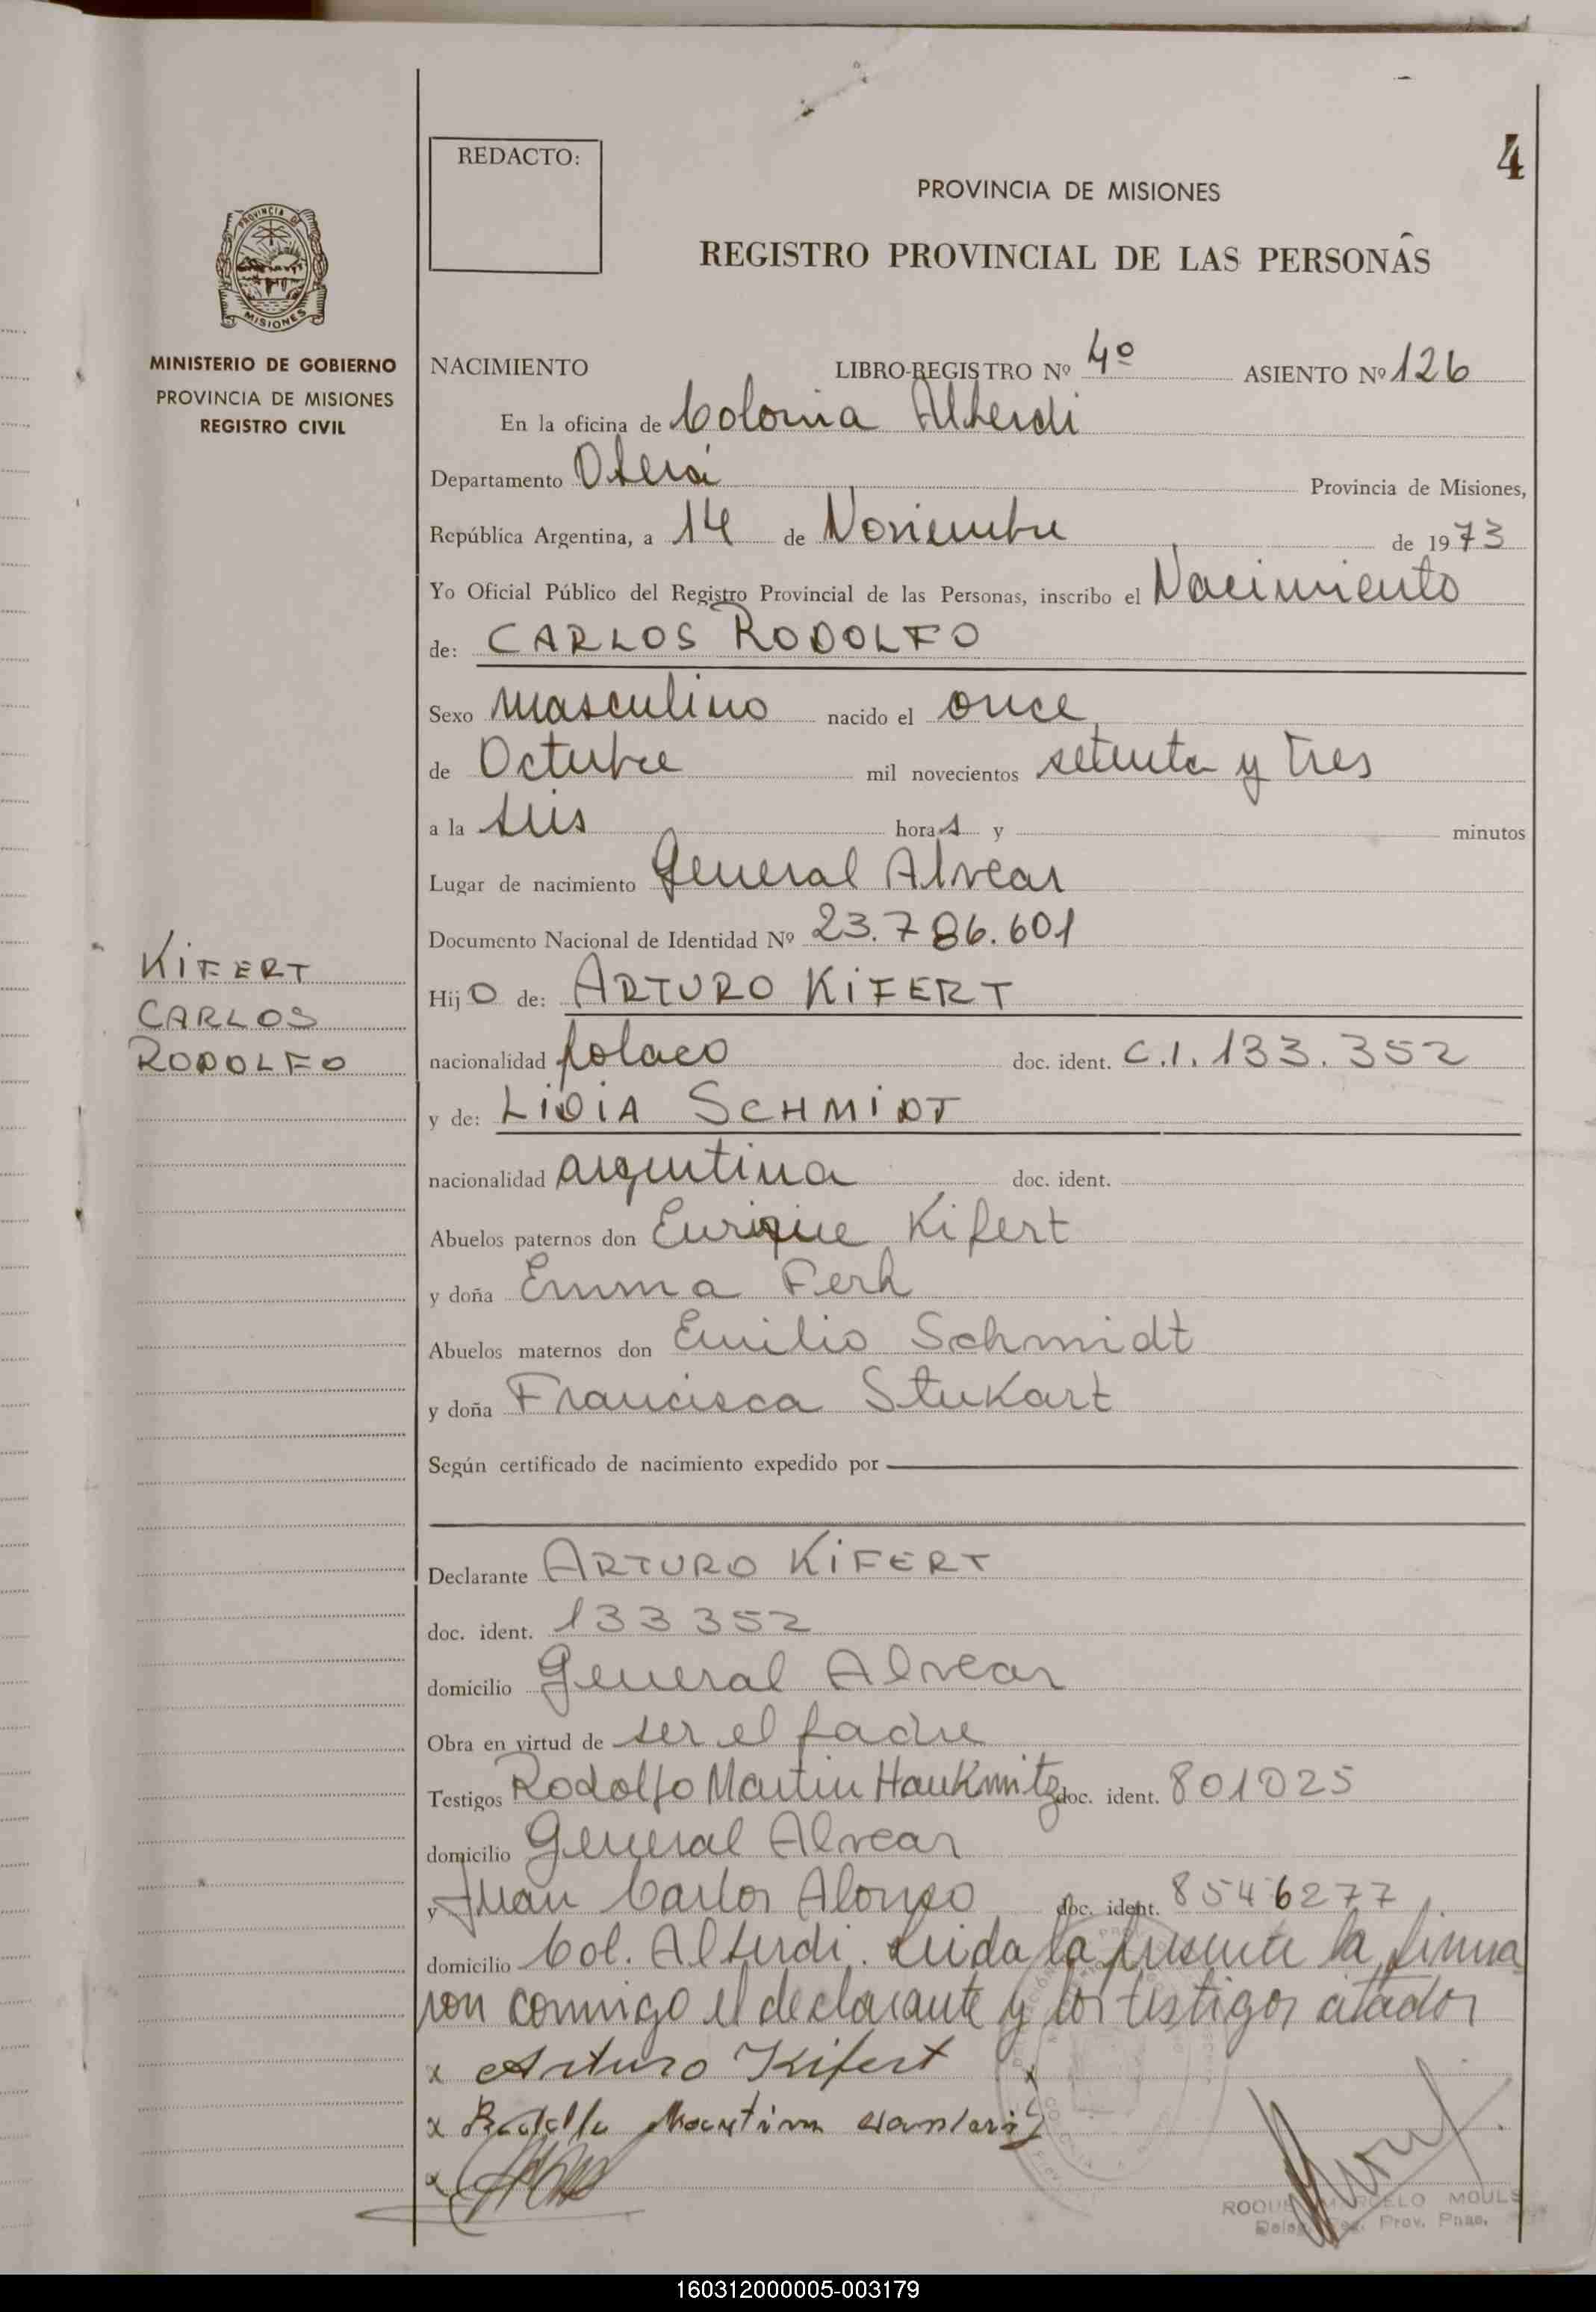 4
REDACTO:
PROVINCIA DE MISIONES
REGISTRO PROVINCIAL DE LAS PERSONAS
PROVINCIA DE
MISIONES
MINISTERIO DE GOBIERNO
PROVINCIA DE MISIONES
REGISTRO CIVIL
NACIMIENTO LIBRO-REGISTRO Nº 4º ASIENTO Nº 126
En la oficina de Colonia Alberdi
Departamento Oberá Provincia de Misiones,
República Argentina, a 14 de Noviembre de 1973
Yo Oficial Público del Registro Provincial de las Personas, inscribo el Nacimiento
de: CARLOS RODOLFO
Sexo masculino nacido el once
de Octubre mil novecientos setenta y tres
a la seis horas y minutos
Lugar de nacimiento General Alvear
Documento Nacional de Identidad Nº 23.786.601
KIFERT
CARLOS
RODOLFO
Hijo de: ARTURO KIFERT
nacionalidad polaco doc. ident. C.I. 133.352
y de: LIDIA SCHMIDT
nacionalidad argentina doc. ident.
Abuelos paternos don Enrique Kifert
y doña Emma Ferh
Abuelos maternos don Emilio Schmidt
y doña Francisca Stukart
Según certificado de nacimiento expedido por
Declarante ARTURO KIFERT
doc. ident. 133352
domicilio General Alvear
Obra en virtud de ser el padre
Testigos Rodolfo Martin Haukwitz doc. ident. 801025
domicilio General Alvear
y Juan Carlos Alonso doc. ident. 8546277
domicilio Col. Alberdi. Leida la presente la firma
ron conmigo el declarante y los testigos citados
x Arturo Kifert x
x Rodolfo Martin
x
ROQUE MARCELO MOULS
Deleg. Reg. Prov. Pnas.
160312000005-003179